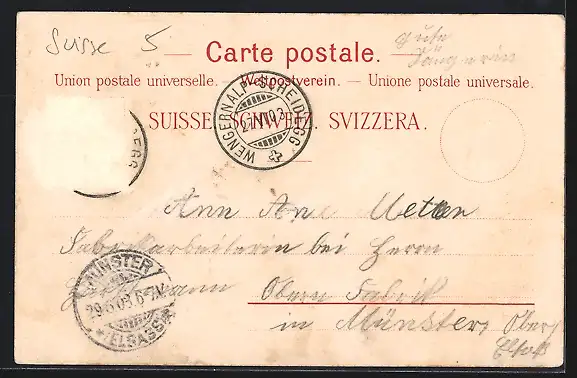 Suisse 5
Carte postale.
Gute
Sängerin
Union postale universelle. — Weltpostverein. — Unione postale universale.
SUISSE. SCHWEIZ. SVIZZERA.
WENGERNALP-SCHEIDEGG
Ann
Fabrikarbeiterin bei Herrn
Obern Fabrik
in Münster, Ober
Elsaß
MÜNSTER
29.6.03.
(ELSASS)